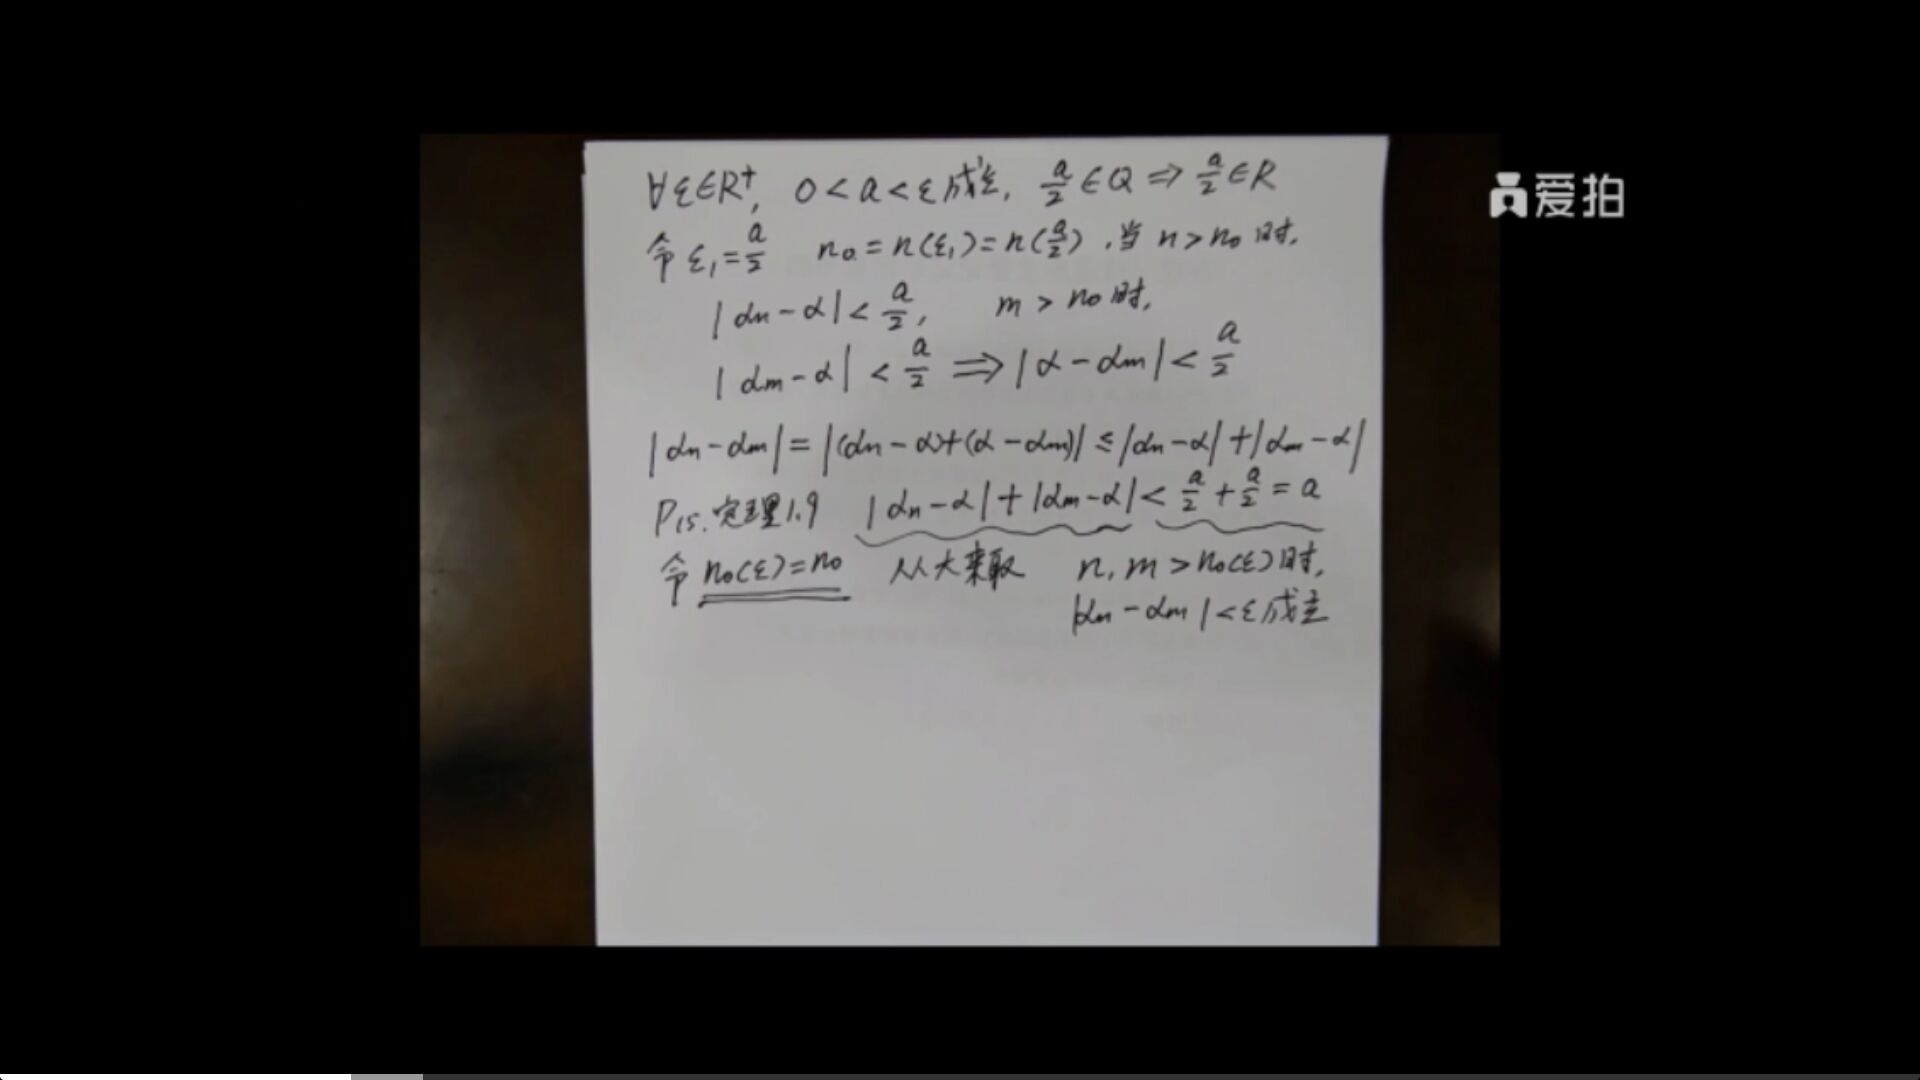 ∀ε∈R⁺, 0<a<ε成立, a/2∈Q⇒a/2∈R
令ε₁=a/2 n₀=n(ε₁)=n(a/2),当n>n₀时,
|αn-α|<a/2, m>n₀时,
|αm-α|<a/2⇒|α-αm|<a/2
|αn-αm|=|(αn-α)+(α-αm)|≤|αn-α|+|αm-α|
P₁₅.定理1.9 |αn-α|+|αm-α|<a/2+a/2=a
令n₀(ε)=n₀ 从大来取 n,m>n₀(ε)时,
|αn-αm|<ε成立
爱拍